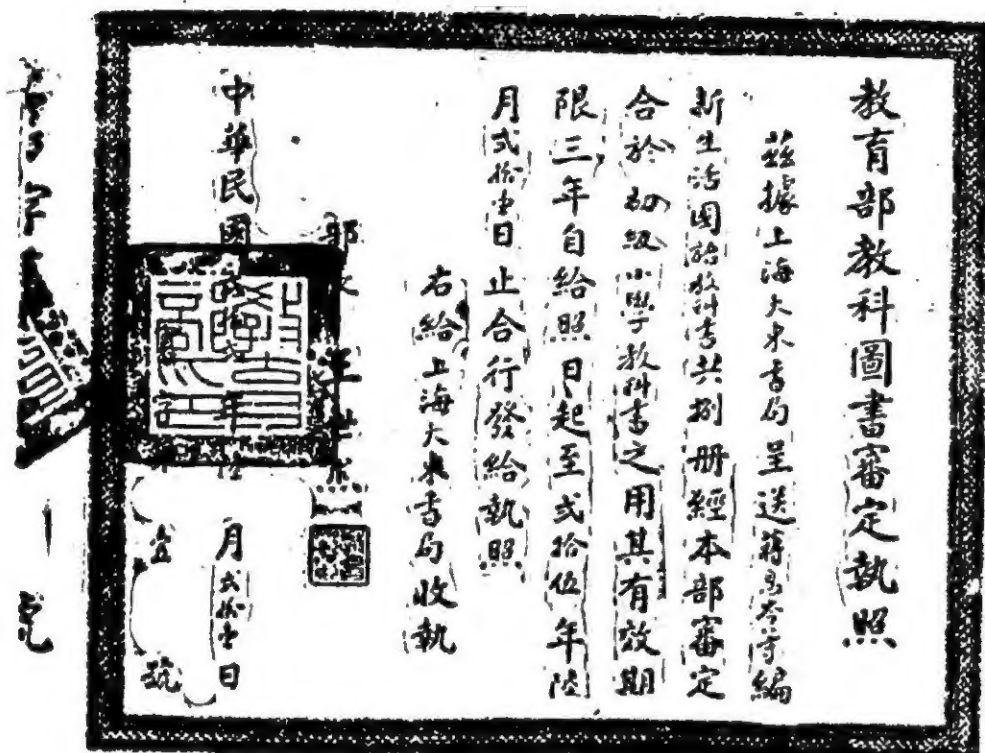 教育部教科圖書審定執照
茲據上海大東書局呈送蔣息岑等編
新生活國語教科書共捌冊經本部審定
合於初級小學教科書之用其有效期
限三年自給照日起至弍拾伍年陸
月弍拾壹日止合行發給執照
右給上海大東書局收執
部長王世
中華民國年月弍拾壹日
號